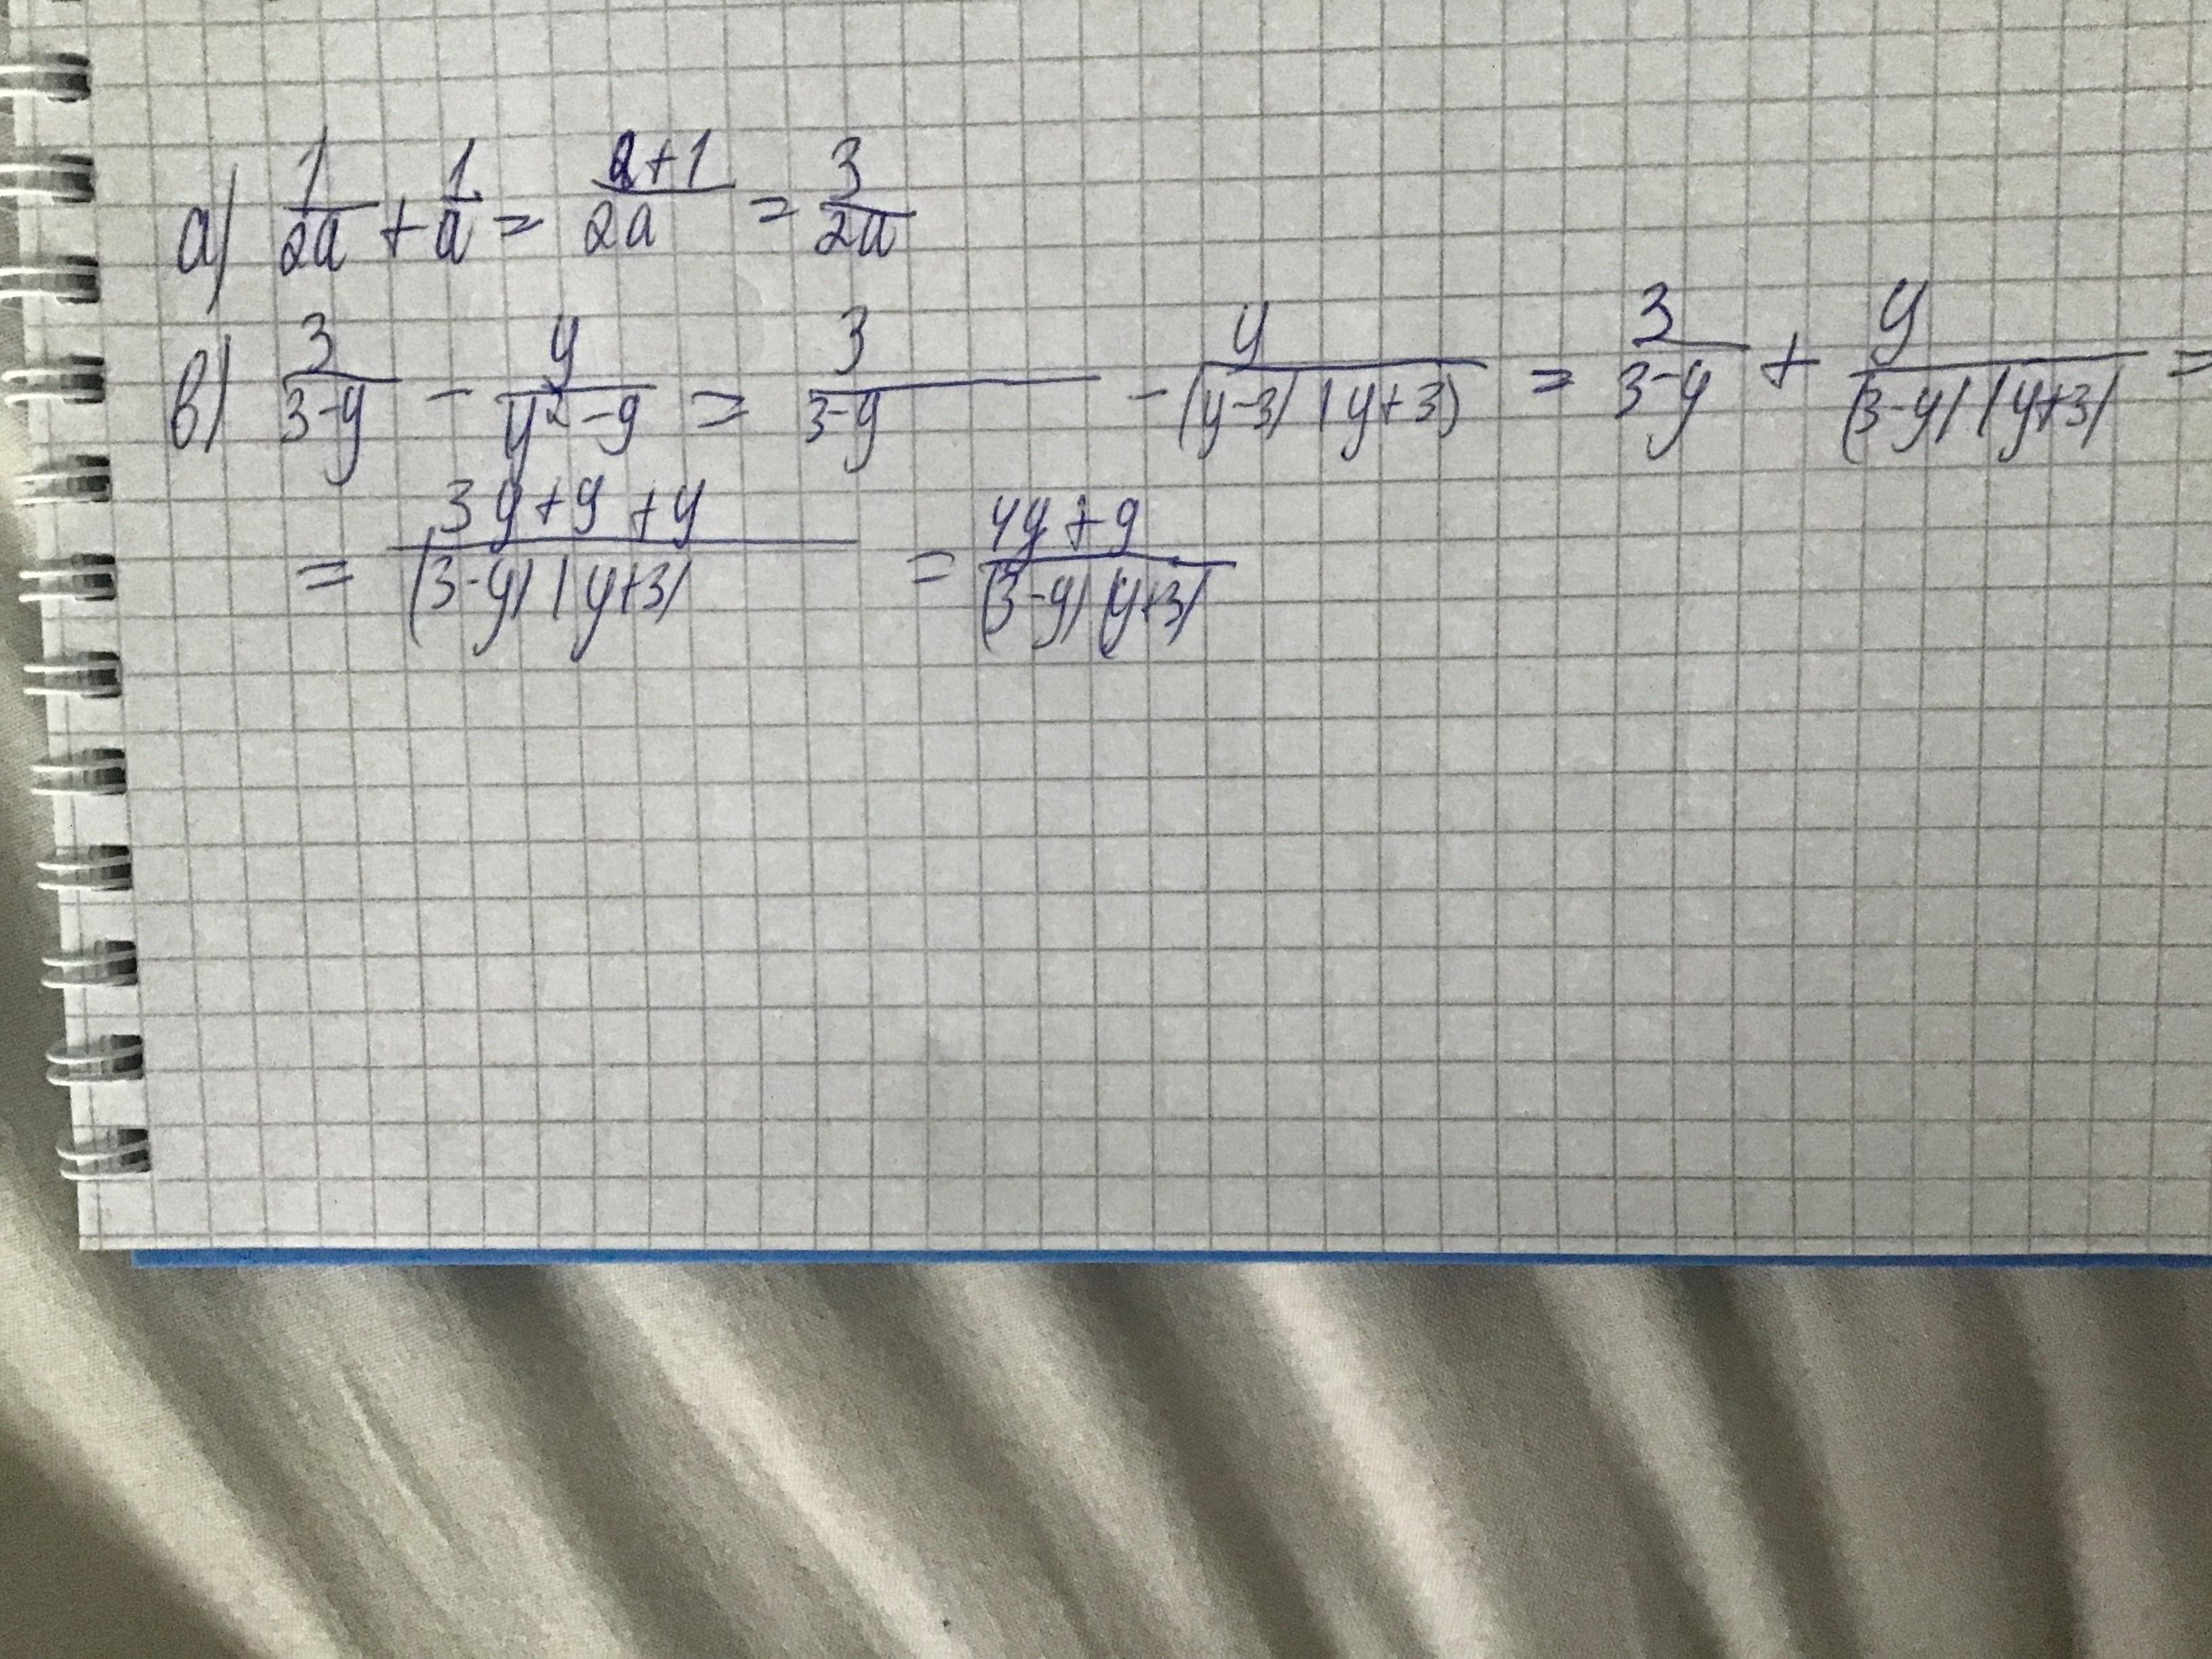 а) 1/2a + 1/a = 2+1/2a = 3/2a
в) 3/3-y - y/y²-9 = 3/3-y - y/(y-3)(y+3) = 3/3-y + y/(3-y)(y+3) =
= 3y+9+y/(3-y)(y+3) = 4y+9/(3-y)(y+3)